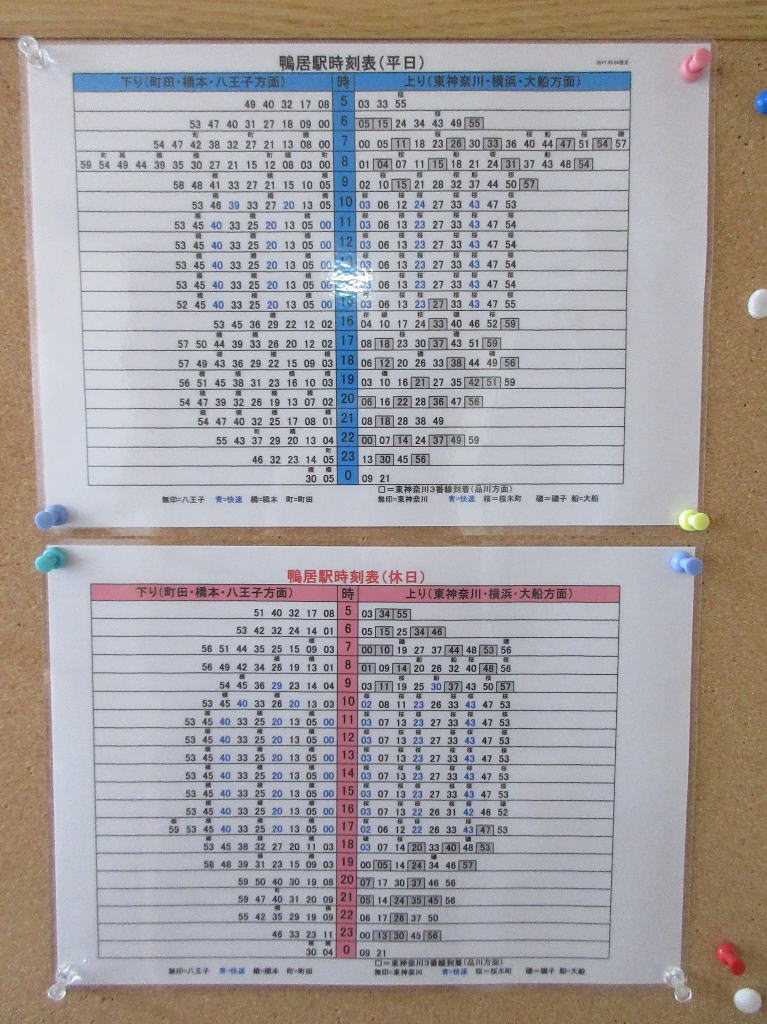 鴨居駅時刻表(平日)
下り(町田・橋本・八王子方面) 時 上り(東神奈川・横浜・大船方面)
桜
49 40 32 17 08 5 03 33 55
桜
53 47 40 31 27 18 09 00 6 05 15 24 34 43 49 55
町 町 橋 桜 桜 船 桜 磯
54 47 42 38 32 27 21 13 08 00 7 00 05 11 18 23 26 30 33 36 40 44 47 51 54 57
59 54 49 44 39 35 30 27 21 15 12 08 03 00 8 01 04 07 11 15 18 21 24 31 37 43 48 54
58 48 41 33 27 21 15 10 05 9 02 10 15 21 28 32 37 44 50 57
53 46 39 33 27 20 13 05 10 03 06 12 24 27 33 43 47 53
53 45 40 33 25 20 13 05 00 11 03 06 13 23 27 33 43 47 54
53 45 40 33 25 20 13 05 00 12 03 06 13 23 27 33 43 47 54
53 45 40 33 25 20 13 05 00 03 06 13 23 27 33 43 47 54
53 45 40 33 25 20 13 05 00 03 06 13 23 27 33 43 47 54
52 45 40 33 25 20 13 05 00 15 03 06 13 23 27 33 43 47 55
53 45 36 29 22 12 02 16 04 10 17 24 33 40 46 52 59
57 50 44 39 33 26 20 12 02 17 08 18 23 30 37 43 51 59
57 49 43 36 29 22 15 09 03 18 06 12 20 26 33 38 44 49 56
56 51 45 38 31 23 16 10 03 19 03 10 16 21 27 35 42 51 59
54 47 39 32 26 19 13 07 02 20 06 16 22 28 36 47 56
54 47 40 32 25 17 08 01 21 08 18 28 38 49
55 43 37 29 20 13 04 22 00 07 14 24 37 49 59
町
46 32 23 14 05 23 13 30 45 56
橋 橋
30 05 0 09 21
□=東神奈川3番線到着(品川方面)
無印=八王子 青=快速 橋=橋本 町=町田 無印=東神奈川 青=快速 桜=桜木町 磯=磯子 船=大船
鴨居駅時刻表(休日)
下り(町田・橋本・八王子方面) 時 上り(東神奈川・横浜・大船方面)
51 40 32 17 08 5 03 34 55
53 42 32 24 14 01 6 05 15 25 34 46
橋 磯 磯
56 51 44 35 25 15 09 03 7 00 10 19 27 37 44 48 53 56
56 49 42 34 26 19 13 01 8 01 09 14 20 26 32 40 48 56
54 45 36 29 23 14 04 9 03 11 19 25 30 37 43 50 57
53 45 40 33 26 20 13 03 10 02 08 11 23 26 33 43 47 53
53 45 40 33 25 20 13 05 00 11 03 07 13 23 27 33 43 47 53
53 45 40 33 25 20 13 05 00 12 03 07 13 23 27 33 43 47 53
53 45 40 33 25 20 13 05 00 13 03 07 13 23 27 33 43 47 53
53 45 40 33 25 20 13 05 00 14 03 07 13 23 27 33 43 47 53
53 45 40 33 25 20 13 05 00 15 03 07 13 23 27 33 43 47 53
53 45 40 33 25 20 13 05 00 16 03 07 13 22 26 31 42 46 52
59 53 45 40 33 25 20 13 05 00 17 02 06 12 22 26 33 43 47 53
53 45 38 32 27 20 11 03 18 03 07 14 20 33 40 48 53
58 48 39 31 23 15 09 03 19 00 05 14 24 34 46 57
59 50 40 30 19 08 20 07 17 30 37 46 56
町
59 47 40 31 20 09 21 05 14 24 35 45 56
橋 橋
55 42 35 29 19 09 22 06 17 26 37 50
46 33 23 11 23 00 13 30 45 56
橋 橋
30 04 0 09 21
□=東神奈川3番線到着(品川方面)
無印=八王子 青=快速 橋=橋本 町=町田 無印=東神奈川 青=快速 桜=桜木町 磯=磯子 船=大船